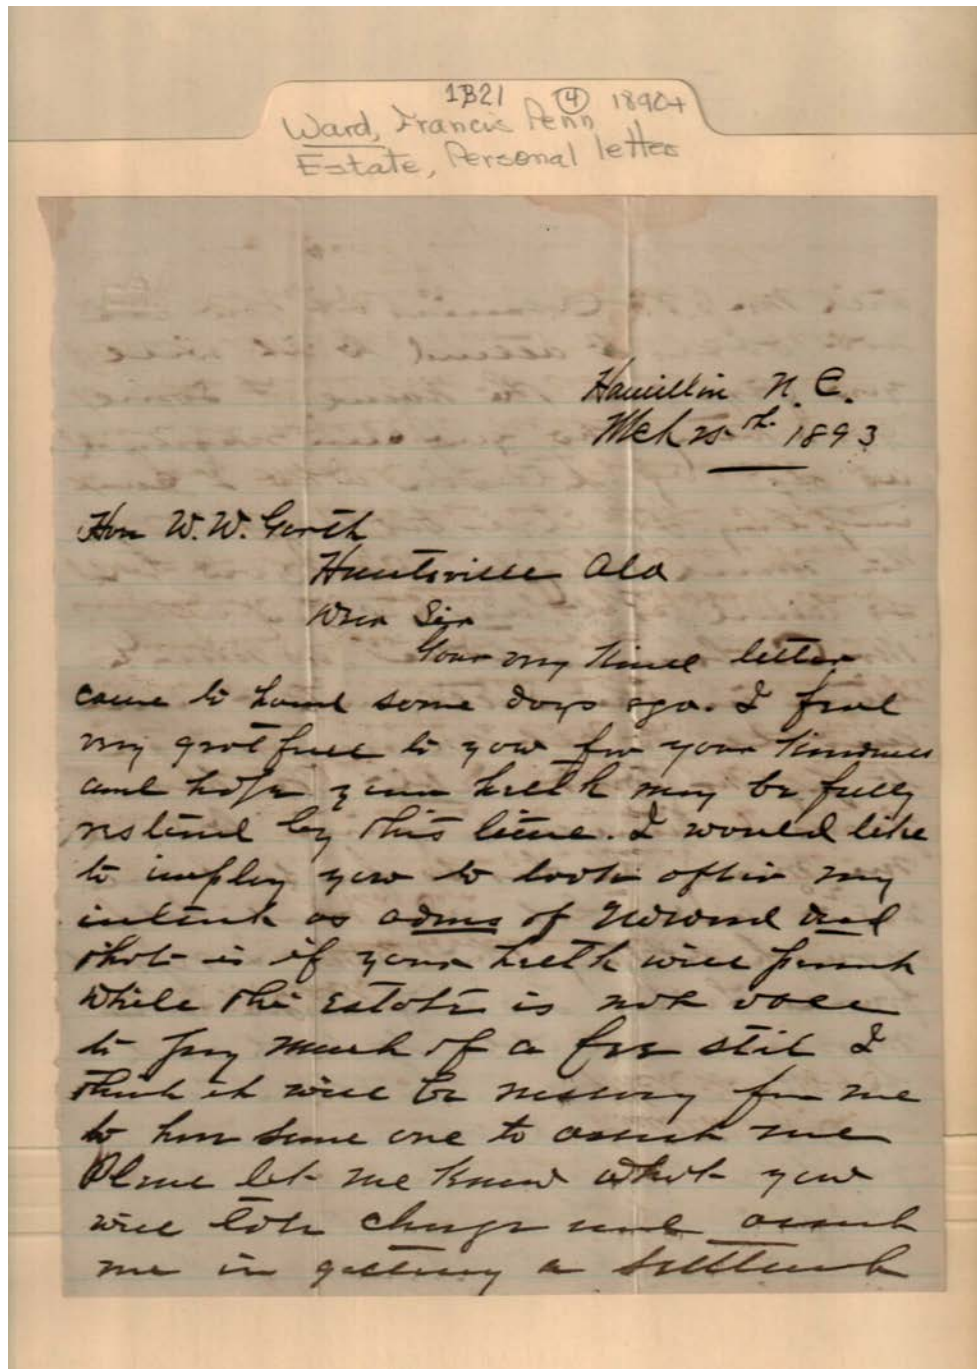 1B21 ④ 1890+
Ward, Francis Penn
Estate, Personal letter
Hamilton N. C.
Mch 25th 1893
Hon W. W. Garth
Huntsville Ala
Dear Sir
Your very kind letter
came to hand some days ago. I feel
very gratfull to you for your kindness
and hope your helth may be fully
restored by this time. I would like
to imploy you to look after my
intrest as adms of
that is if your helth will permit
While this Estate is not able
to pay much of a fee stil I
think it will be nessary for me
to have some one to assist me
Please let me know what you
will take charge and assist
me in getting a settlement